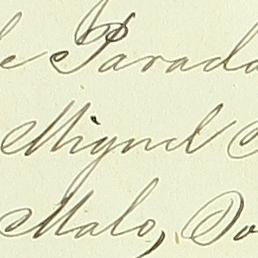 Parada
Miguel
Malo, Do